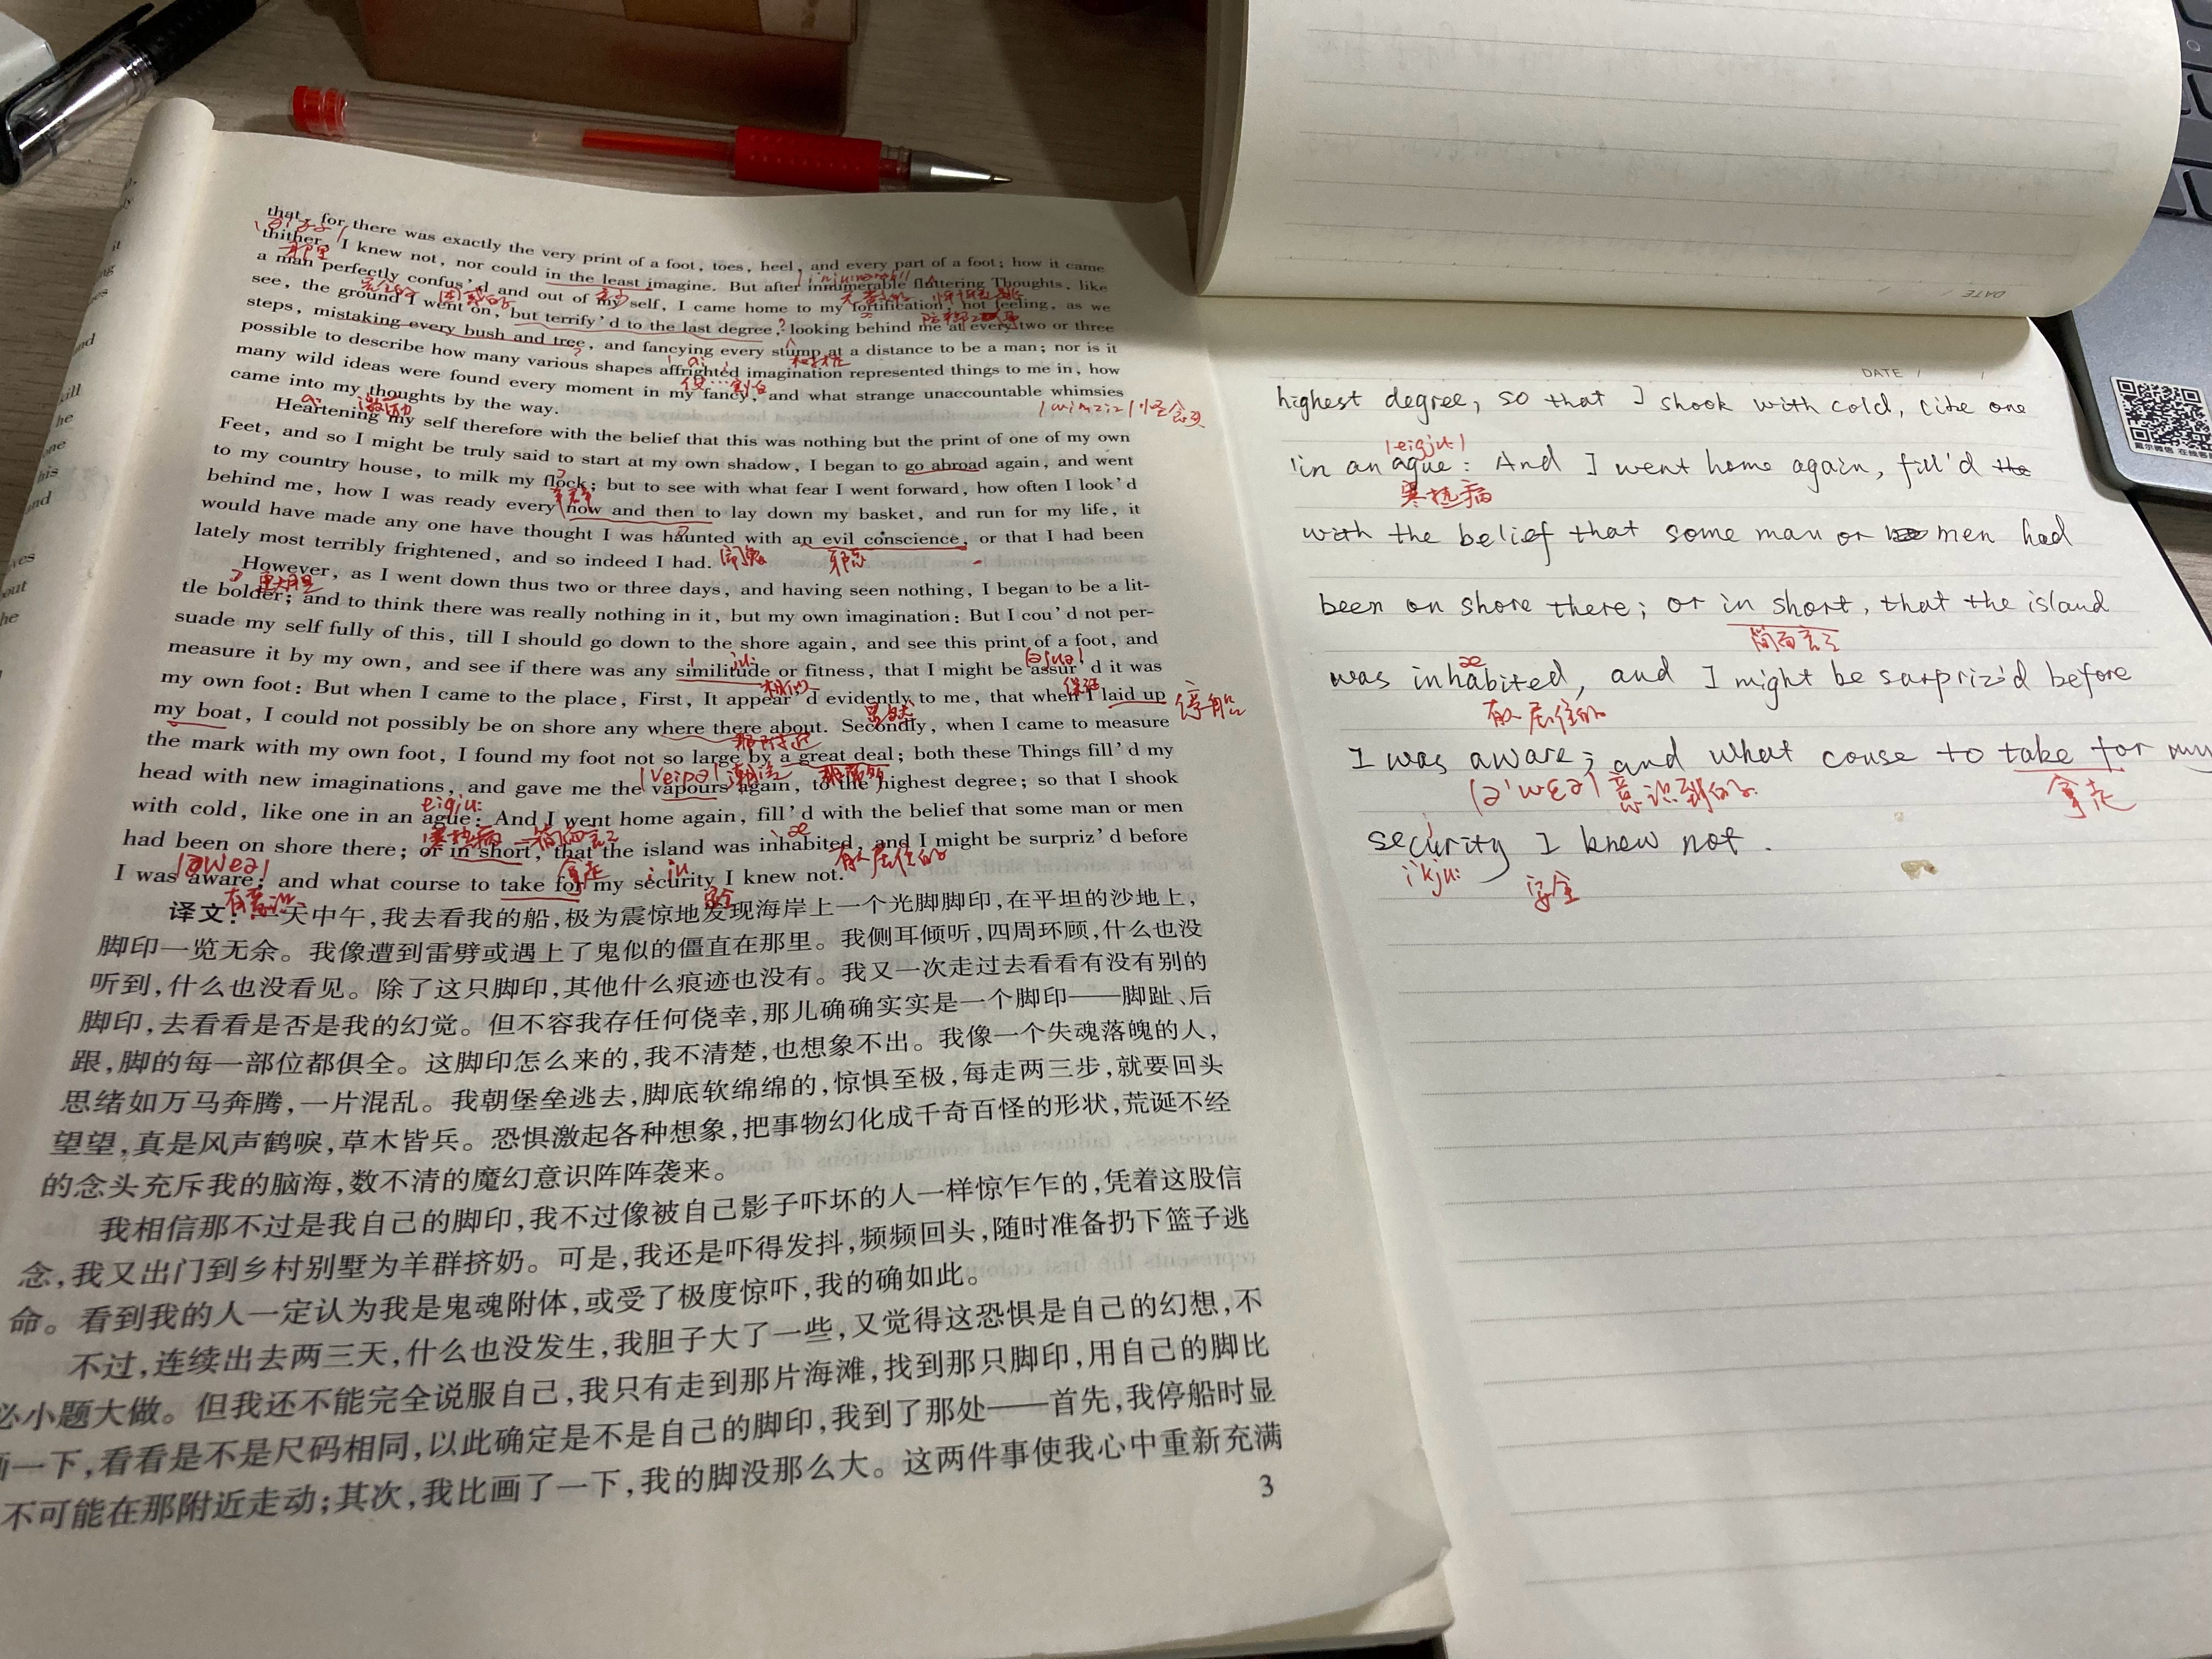 that, for there was exactly the very print of a foot, toes, heel, and every part of a foot; how it came
thither, I knew not, nor could in the least imagine. But after innumerable fluttering Thoughts, like
那里
a man perfectly confus'd and out of my self, I came home to my fortification, not feeling, as we
完全的 困惑的
see, the ground I went on, but terrify'd to the last degree, looking behind me at every two or three
steps, mistaking every bush and tree, and fancying every stump at a distance to be a man; nor is it
树桩
possible to describe how many various shapes affrighted imagination represented things to me in, how
many wild ideas were found every moment in my fancy, and what strange unaccountable whimsies
came into my thoughts by the way.
激励
Heartening my self therefore with the belief that this was nothing but the print of one of my own
Feet, and so I might be truly said to start at my own shadow, I began to go abroad again, and went
to my country house, to milk my flock; but to see with what fear I went forward, how often I look'd
羊群
behind me, how I was ready every now and then to lay down my basket, and run for my life, it
would have made any one have thought I was haunted with an evil conscience, or that I had been
lately most terribly frightened, and so indeed I had.
邪恶
However, as I went down thus two or three days, and having seen nothing, I began to be a lit-
更大胆
tle bolder; and to think there was really nothing in it, but my own imagination: But I cou'd not per-
suade my self fully of this, till I should go down to the shore again, and see this print of a foot, and
measure it by my own, and see if there was any similitude or fitness, that I might be assur'd it was
相似 保证
my own foot: But when I came to the place, First, It appear'd evidently to me, that when I laid up
停船
my boat, I could not possibly be on shore any where there about. Secondly, when I came to measure
那附近
the mark with my own foot, I found my foot not so large by a great deal; both these Things fill'd my
head with new imaginations, and gave me the vapours again, to the highest degree; so that I shook
with cold, like one in an ague: And I went home again, fill'd with the belief that some man or men
寒热病 简而言之
had been on shore there; or in short, that the island was inhabited, and I might be surpriz'd before
有人居住的
I was aware; and what course to take for my security I knew not.
拿走
安全
译文:一天中午,我去看我的船,极为震惊地发现海岸上一个光脚脚印,在平坦的沙地上,
脚印一览无余。我像遭到雷劈或遇上了鬼似的僵直在那里。我侧耳倾听,四周环顾,什么也没
听到,什么也没看见。除了这只脚印,其他什么痕迹也没有。我又一次走过去看看有没有别的
脚印,去看看是否是我的幻觉。但不容我存任何侥幸,那儿确确实实是一个脚印——脚趾、后
跟,脚的每一部位都俱全。这脚印怎么来的,我不清楚,也想象不出。我像一个失魂落魄的人,
思绪如万马奔腾,一片混乱。我朝堡垒逃去,脚底软绵绵的,惊惧至极,每走两三步,就要回头
望望,真是风声鹤唳,草木皆兵。恐惧激起各种想象,把事物幻化成千奇百怪的形状,荒诞不经
的念头充斥我的脑海,数不清的魔幻意识阵阵袭来。
我相信那不过是我自己的脚印,我不过像被自己影子吓坏的人一样惊乍乍的,凭着这股信
念,我又出门到乡村别墅为羊群挤奶。可是,我还是吓得发抖,频频回头,随时准备扔下篮子逃
命。看到我的人一定认为我是鬼魂附体,或受了极度惊吓,我的确如此。
不过,连续出去两三天,什么也没发生,我胆子大了一些,又觉得这恐惧是自己的幻想,不
必小题大做。但我还不能完全说服自己,我只有走到那片海滩,找到那只脚印,用自己的脚比
一下,看看是不是尺码相同,以此确定是不是自己的脚印,我到了那处——首先,我停船时显
不可能在那附近走动;其次,我比画了一下,我的脚没那么大。这两件事使我心中重新充满
3
DATE
DATE
highest degree, so that I shook with cold, like one
in an ague: And I went home again, fill'd the
寒热病
with the belief that some man or men had
been on shore there; or in short, that the island
简而言之
was inhabited, and I might be surpriz'd before
有人居住的
I was aware; and what couse to take for my
意识到的 拿走
security I knew not.
安全